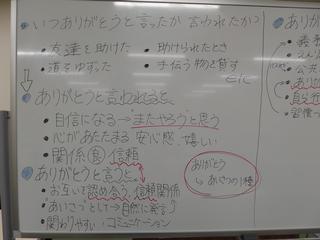 いつありがとうと言ったか 言われたか?
・友達を助けた ・助けられたとき
・道をゆずった ・手伝う物を貸す
etc
ありがとうと言われると
・自信になる→またやろうと思う
・心があたたまる 安心感、嬉しい
・関係(良) 信頼
ありがとうと言うと
・お互いを認め合う、信頼関係
・あいさつとして→自然に発言
・関わりやすい・コミュニケーション
ありがとう
↳あいさつの1種
ありが